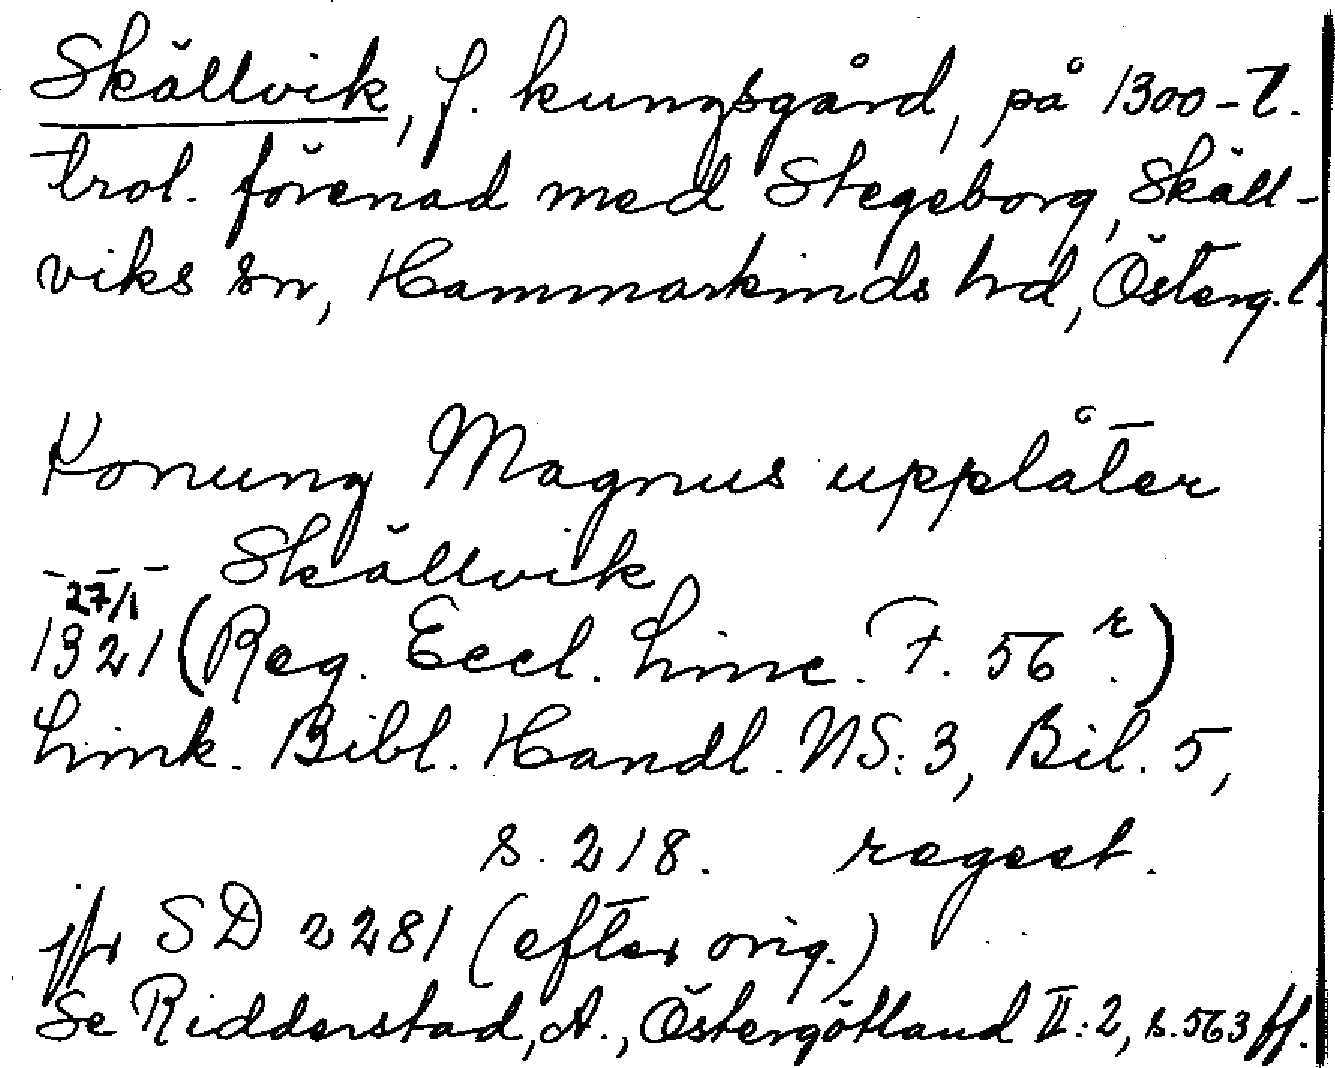 Skällvik, f. kungsgård, på 1300-t.
trol. förenad med Stegeborg, Skäll-
viks sn, Hammarkinds hd, Österg.l.
Konung Magnus upplåter
- - - Skällvik
27/1
1321 (Reg. Eccl. Linc. F. 56 r.)
Link. Bibl. Handl. NS: 3, Bil. 5,
s. 218. regest.
jfr SD 2281 (efter orig.)
Se Ridderstad, A., Östergötland II:2, s. 563 ff.